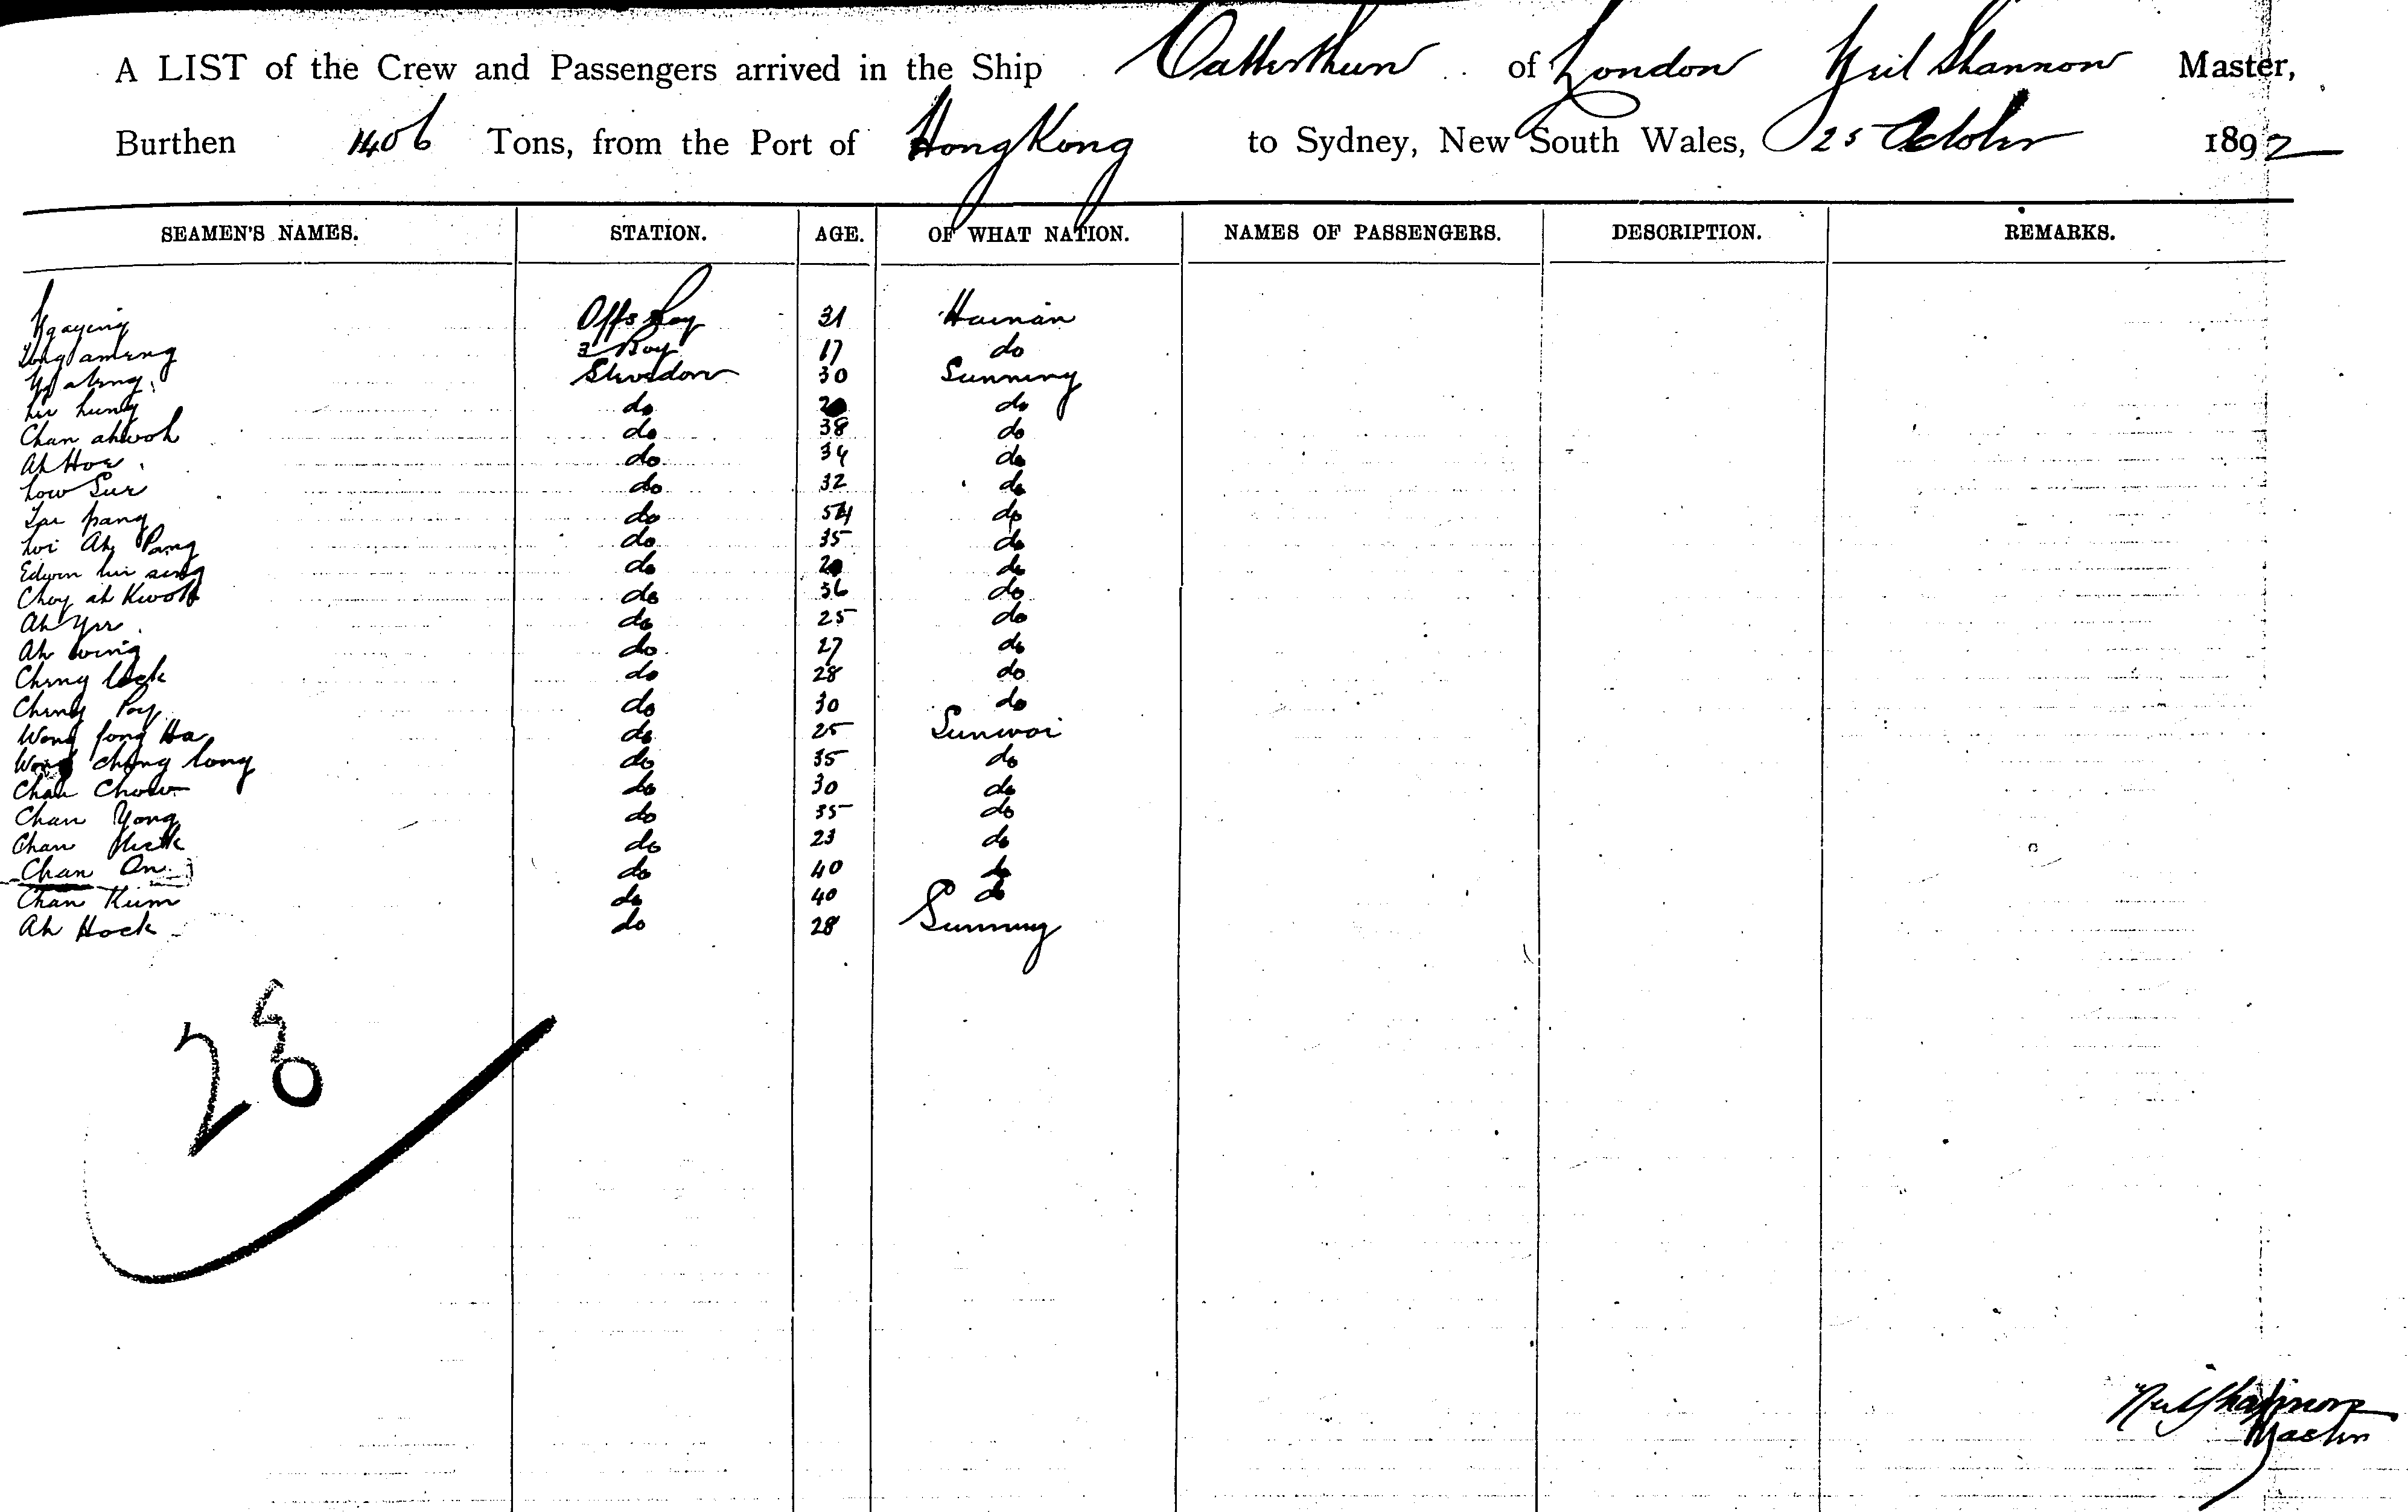 A LIST of the Crew and Passengers arrived in the Ship Catterthun of London Neil Shannon Master,
Burthen 1406 Tons, from the Port of Hong Kong to Sydney, New South Wales, 25 October 1892
SEAMEN'S NAMES. STATION. AGE. OF WHAT NATION. NAMES OF PASSENGERS. DESCRIPTION. REMARKS.
Ngaying Offs Boy 31 Hainan
3 Boy 17 do
30 Sunning
do do
Chan ahwoh do 38 do
Ah Hoe do 34 do
Low Sue do 32 do
Tai pang do 54 do
Loi Ah Pang do 35 do
Edwin do do
Choy ah Kwok do 36 do
Ah Yee do 25 do
Ah wing do 27 do
Cheng do 28 do
Cheng Poy do 30 do
Wong fong Ha do 25 Sunwoi
Wong chong long do 35 do
Chan Chow do 30 do
Chan Yong do 35 do
Chan do 23 do
Chan On do 40 do
Chan Kum do 40 do
Ah Hock do 28 Sunning
28
Neil Shannon
Master